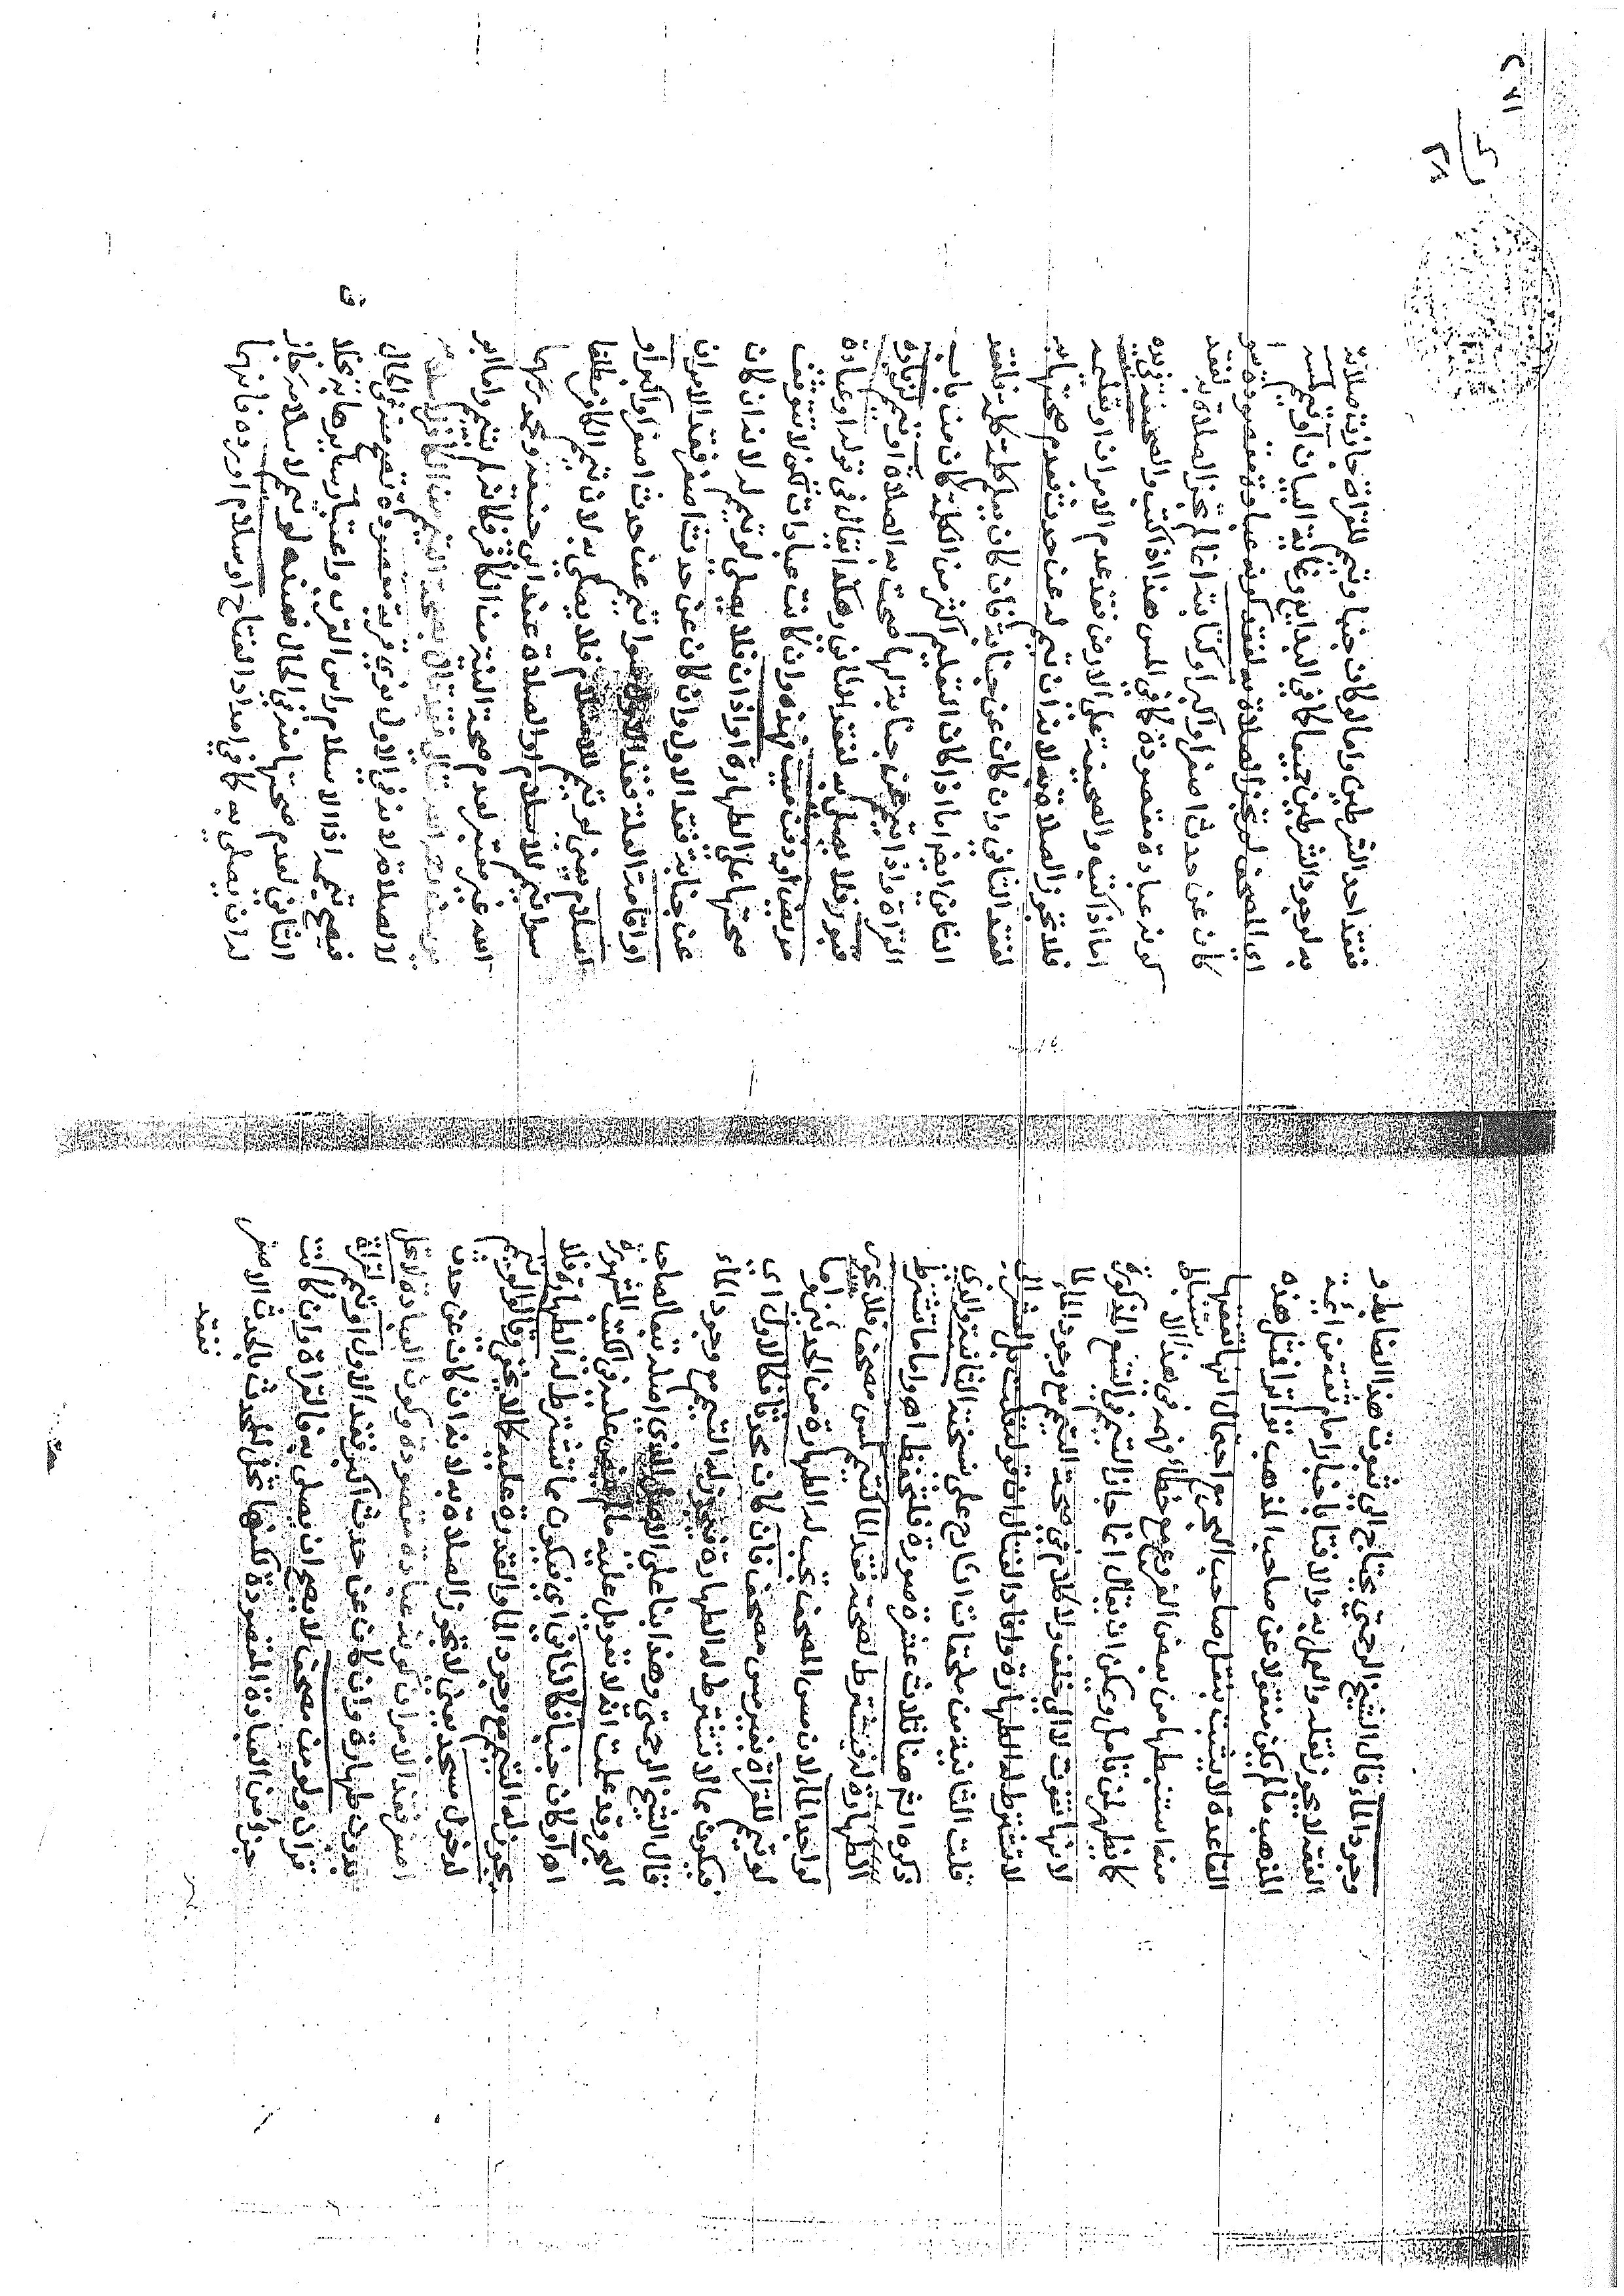 وجود الماء قال الشيخ الرحمتي يحتاج الى ثبوت هذا الضابط و
الفقه لا يجوز نقله والعمل به والافتا باخبار امام ثقة من ائمة
المذهب ما لم يكن منقولا عن صاحب المذهب تواترا فمثل هذه
القاعدة لا يثبت بنقل صاحب البحر مع احتمال انها لبعضها
منه استنبطها من بعض الفروع مع خطائه وفهمه في هذا الاستنباط
كما يظهر لمن تامل ويمكن ان يقال انما جاز التيمم في الشيع المذكورة
لانها تفوت لا الى خلف ولا كلام في صحة التيمم مع وجود الماء لما
لا تشترط له الطهارة وافاد القتال في قوله قلت بل لعشر الى
قلت الثانية من ملحقات الشارح على نسخته الثانية والذي
ذكره الشر هنا ثلاث عشرة صورة فلتحفظ اهـ واما ما تشترط
الطهارة له فيشترط لصحته فقد الماء كتيمم لمس مصحف فلا يجوز
لواجد الماء لان مس المصحف تجب له الطهارة من الحدثين واما
لو تيمم للقراة بغير مس مصحف فان كان محدثا فكالاول اي
فيكون مما لا تشترط له الطهارة فيجوز له التيمم مع وجود الماء
قال الشيخ الرحمتي وهذا بنا على الاصل الذي اصله تبعا لصاحب
البحر وقد علمت انه لا تعويل عليه ما لم ينص عليه في الكتب الشهيرة
اهـ او كان جنبا فكالثاني اي فيكون مما تشترط له الطهارة فلا
يجوز له التيمم مع وجود الماء والقدرة عليه كما لا يخفى وقالوا لو تيمم
لدخول مسجد يعني لا تجوز الصلاة به لانه ان كان عن حدث
اصغر فقد الامران كونه عبادة مقصودة وكون العبادة لا تحل
بدون طهارة وان كان عن حدث اكبر فقد الاول او تيمم لقراة
قران ولو من مصحف لا يصح ان يصلي به فالقراة وان كانت
جزأ من العبادة المقصودة لكنها تحل للمحدث بالحدث الاصغر
ففقد
ففقد احد الشرطين واما لو كان جنبا وتيمم للقراة جازت صلاته
به لوجود الشرطين حينئذ كما في البدايع وغاية البيان او تيمم لمسه
اي المصحف لم تجز الصلاة به لفقد كونه عبادة مقصودة سو
كان عن حدث اصغر او اكبر او كتابته انما لم تجز الصلاة به لفقد
كونه عبادة مقصودة كما في المس هذا اذا كتب والصحيفة في يده
اما اذا كتبه والصحيفة على الارض فقد عدم الامران او تعليمه
فلا تجوز الصلاة به لانه ان تيمم له عن حدث فعدم صحتها به
لفقد الثاني وان كان عن جنابة فان كان يعلم كلمة كلمة فلفقد
الثاني ايضا اما اذا كان التعليم اكثر من الكلمة كان من باب
القراة واذا تيمم عن جنابة لها صحت به الصلاة او تيمم لزيارة
قبور فلا يصلي به لفقد الثاني وهكذا يقال في قوله او عيادة
مريض او دفن ميت فهذه وان كانت عبادات لكن لا تتوقف
صحتها على الطهارة او اذان فلا يصلي لو تيمم له لانه ان كان
عن جنابة فقد الاول وان كان عن حدث اصغر فقد الامران
او اقامة العلة فقد الاول سوا تيمم عن حدث اصغر او اكبر او
اسلام يعني لو تيمم للاسلام فلا يصلي به لان تيمم الكافر مطلقا
سوا تيمم للاسلام او الصلاة عند ابي حنيفة ومحمد رحمهما
الله غير معتبر لعدم صحة النية من الكافر فكانه لم يتيمم واما ابو
يوسف رحمه الله تعالى فقد قال بصحة التيمم من الكافر للاسلام
لا للصلاة لانه في الاول نوى قربة مقصودة تصح منه في الحال
فيصح تيممه اذ الاسلام راس القرب واعتبار سايرها به بخلاف
الثاني لعدم صحتها منه في الحال فعنده لو تيمم لاسلامه جاز
له ان يصلي به كما في امداد الفتاح او سلام او رده فانهما